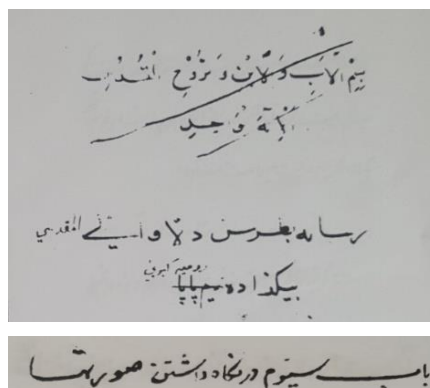 بِسْمِ الْاَبِ وَلْاِبْنِ وَرُوْحِ الْقُدُسِ
اِلٰهٌ وَاحِدٍ
رساله بطرس دلاوالي المقدسي
بیکذاده
باب سیوم در نگاه داشتن صورتها